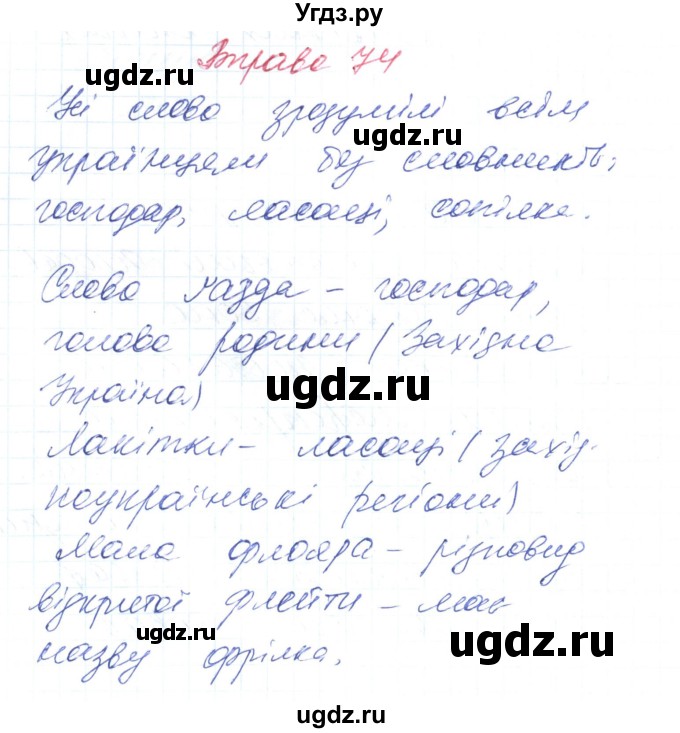 Угдз.ру
Вправа 74
Усі слова зрозумілі всім
українцям без словників:
господар, ласощі, сопілка.
Слово газда – господар,
голова родини (Західна
Україна)
Лакітки – ласощі (захід-
ноукраїнські регіони)
Мала флояра – різновид
відкритої флейти – має
назву фрілка.
ugdz.ru
ugdz.ru
ugdz.ru
ugdz.ru
ugdz.ru
ugdz.ru
ugdz.ru